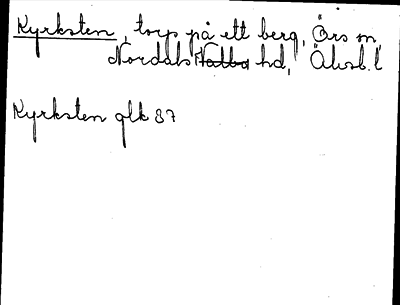 Kyrksten, torp på ett berg, Örs sn,
Nordals hd, Älvsb. l
Kyrksten glk 87